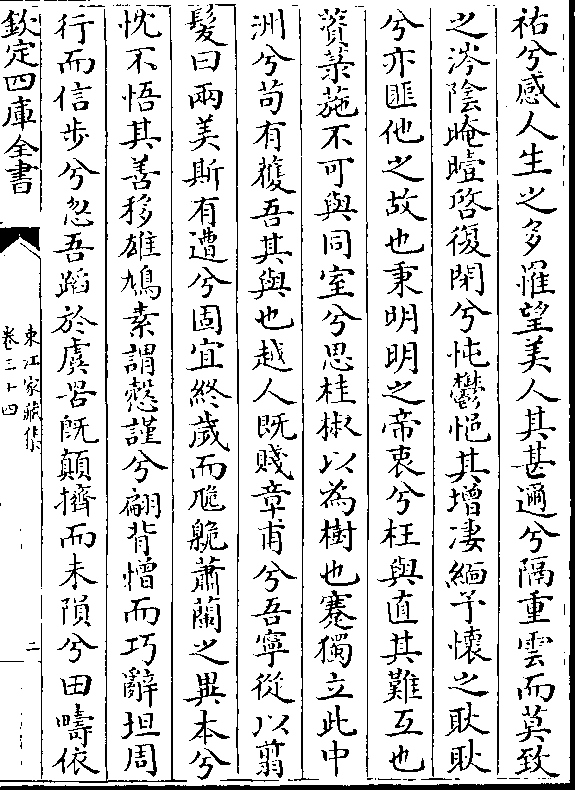 祐兮感人生之多罹望美人其甚邇兮隔重雲而莫致
之涔陰晻曀啓復閉兮忳鬱悒其增凄緬予懷之耿耿
兮亦匪他之故也秉明明之帝衷兮枉與直其難互也
薋菉葹不可與同室兮思桂椒以為樹也蹇獨立此中
洲兮苟有䕶吾其與也越人既賤章甫兮吾寧從以翦
髮曰兩美斯有遭兮固宜終歲而卼臲蕭蘭之異本兮
忱不悟其善移雄鳩素謂愨謹兮翩背憎而巧辭坦周
行而信步兮忽吾蹈於虞罟既顛擠而未隕兮田疇依
欽定四庫全書
東江家藏集
卷三十四
二